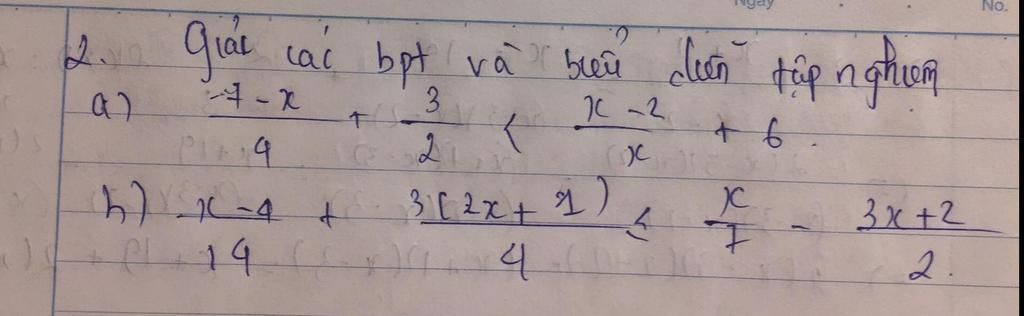 Ngày No.
2. Giải các bpt và biểu diễn tập nghiệm
a) \frac{-7-x}{4} + \frac{3}{2} < \frac{x-2}{x} + 6.
b) \frac{x-4}{14} + \frac{3(2x+1)}{4} ≤ \frac{x}{7} - \frac{3x+2}{2}.